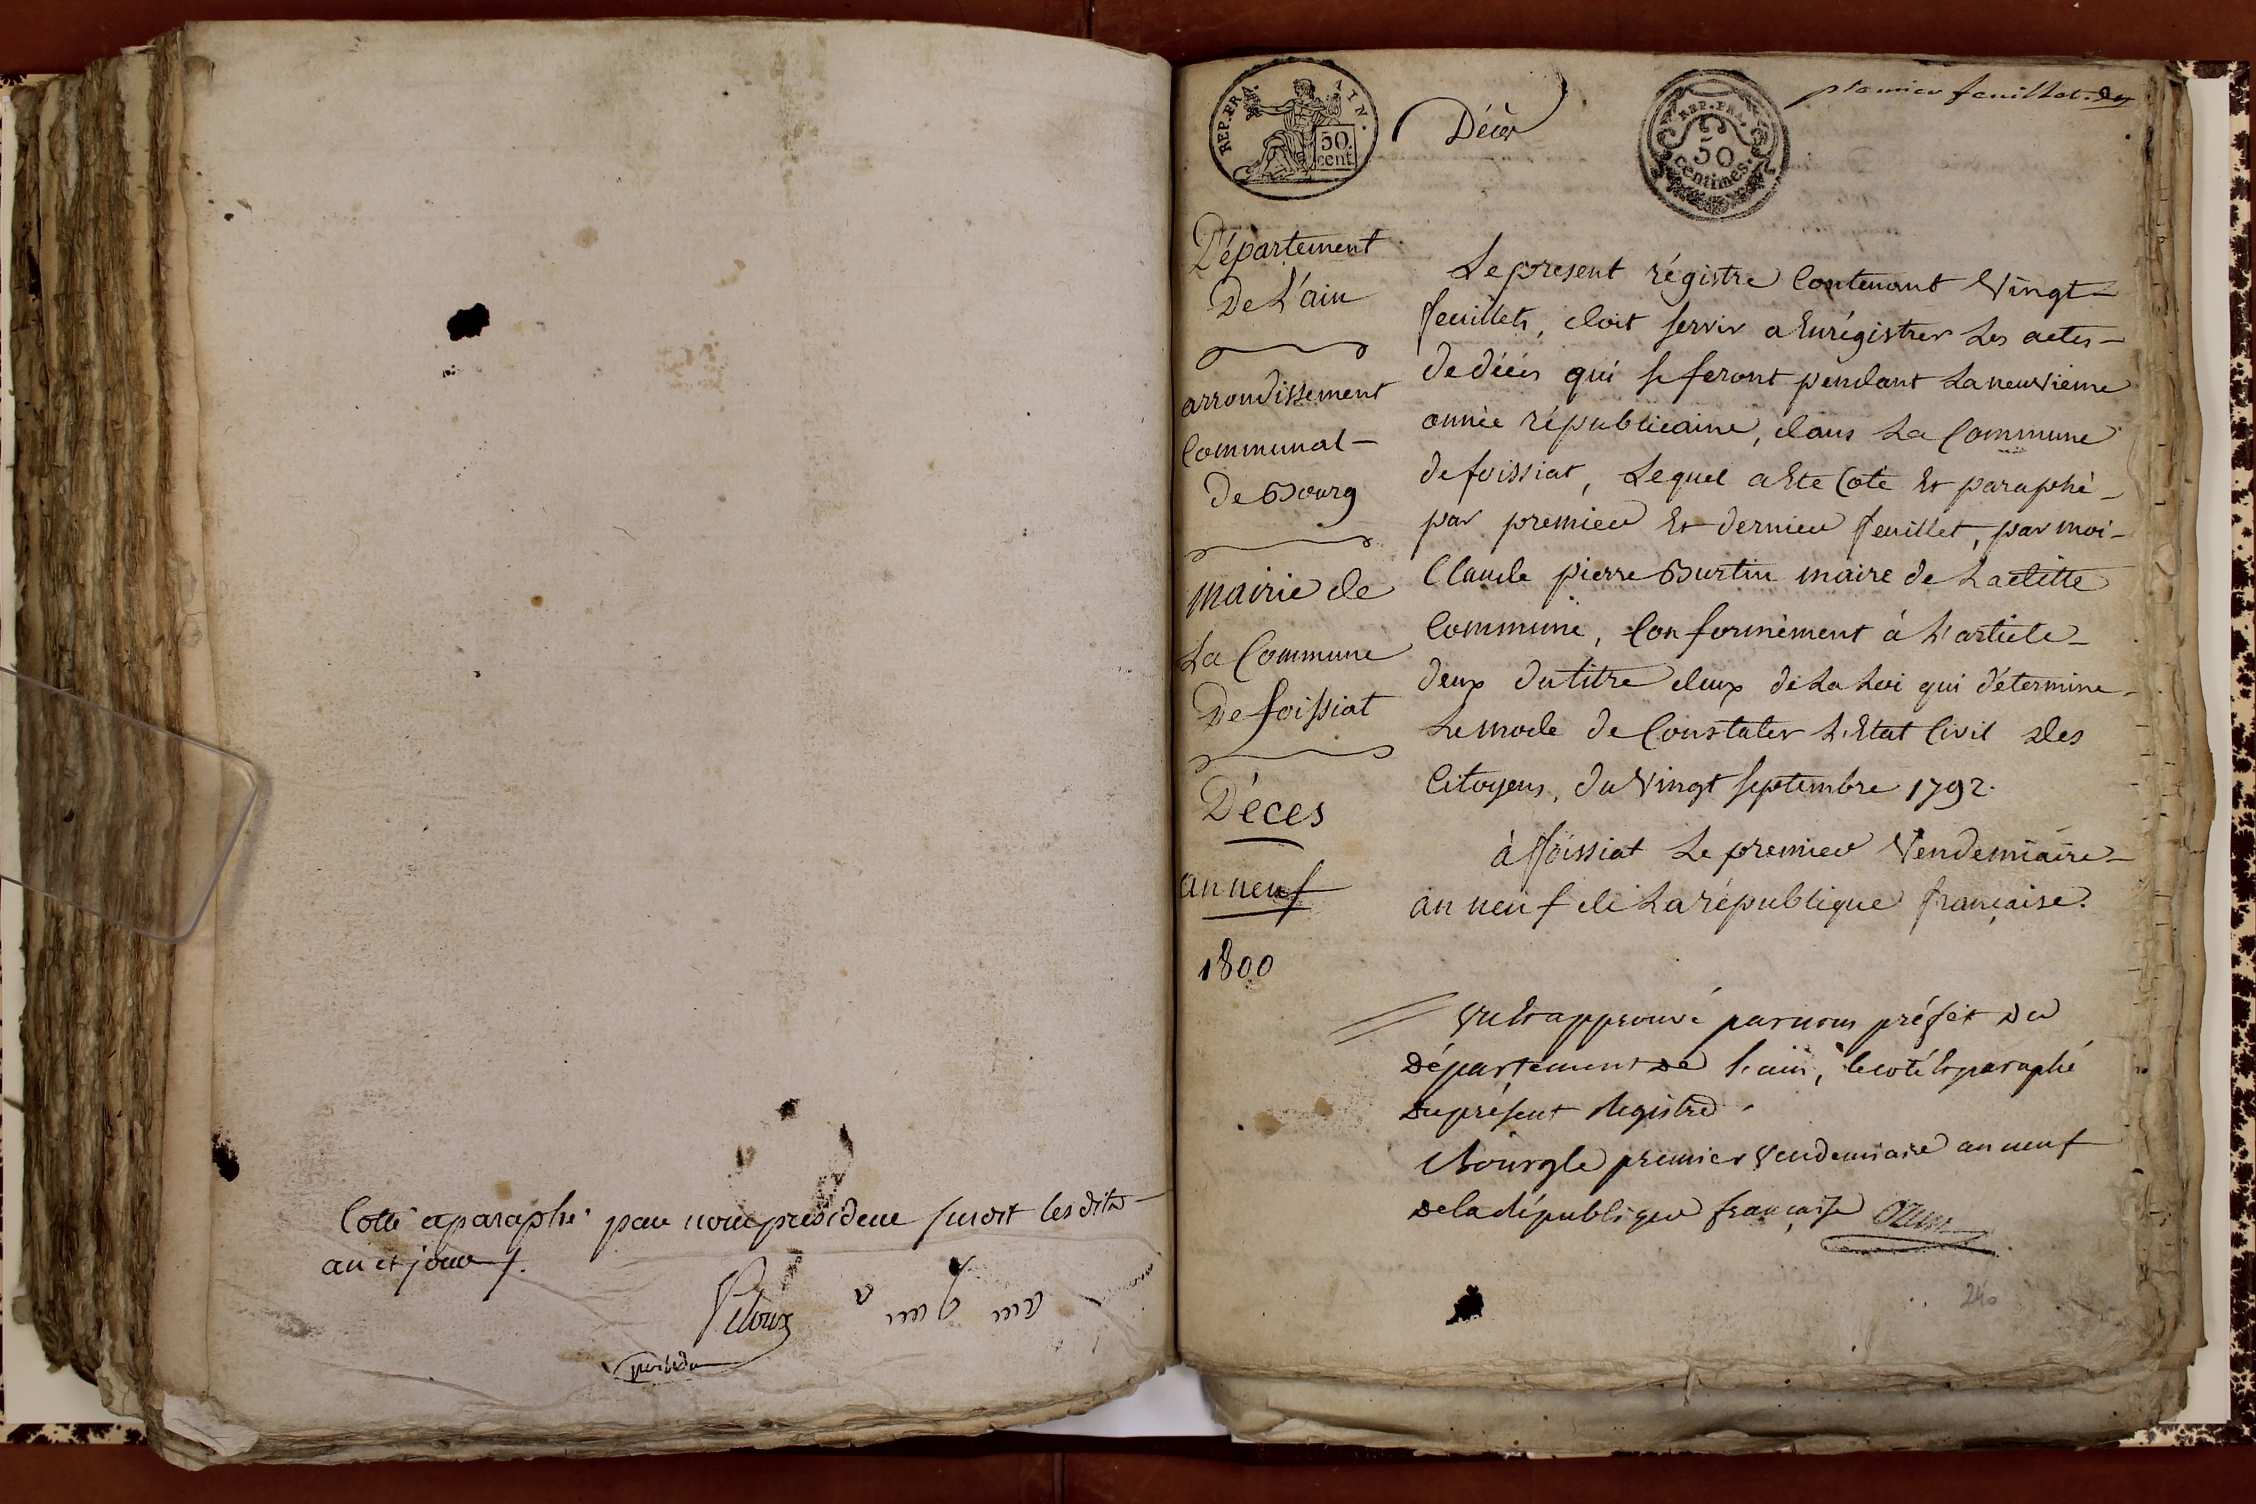 Cotté et paraphé par nous président suivant lesdits
an et jour
REP. FRA. AIN.
50.
cent.
Décès
REP. FRA.
50
centimes.
premier feuillet.
Département
De L'ain
arrondissement
Communal
De Bourg
Mairie de
La Commune
De foissiat
Déces
an neuf
1800
Le present régistre Contenant Vingt
feuillets, doit servir a Enrégistrer Les actes
de décés qui se feront pendant La neuvième
année républicaine, dans La Commune
de foissiat, Lequel a Eté Coté Et paraphé
par premier Et dernier feuillet, par moi
Claude pierre Burtin maire de Laditte
Commune, Conformément à L'article
deux du titre deux de La Loi qui détermine
Le mode de Constater L'Etat Civil des
Citoyens, du Vingt Septembre 1792.
à ffoissiat Le premier Vendemiaire
an neuf de La république française.
Vu Et approuvé par nous préfet du
département de l'ain, le coté Et paraphé
du présent Registre.
Bourg le premier Vendemiaire an neuf
de la République française Ozun
240